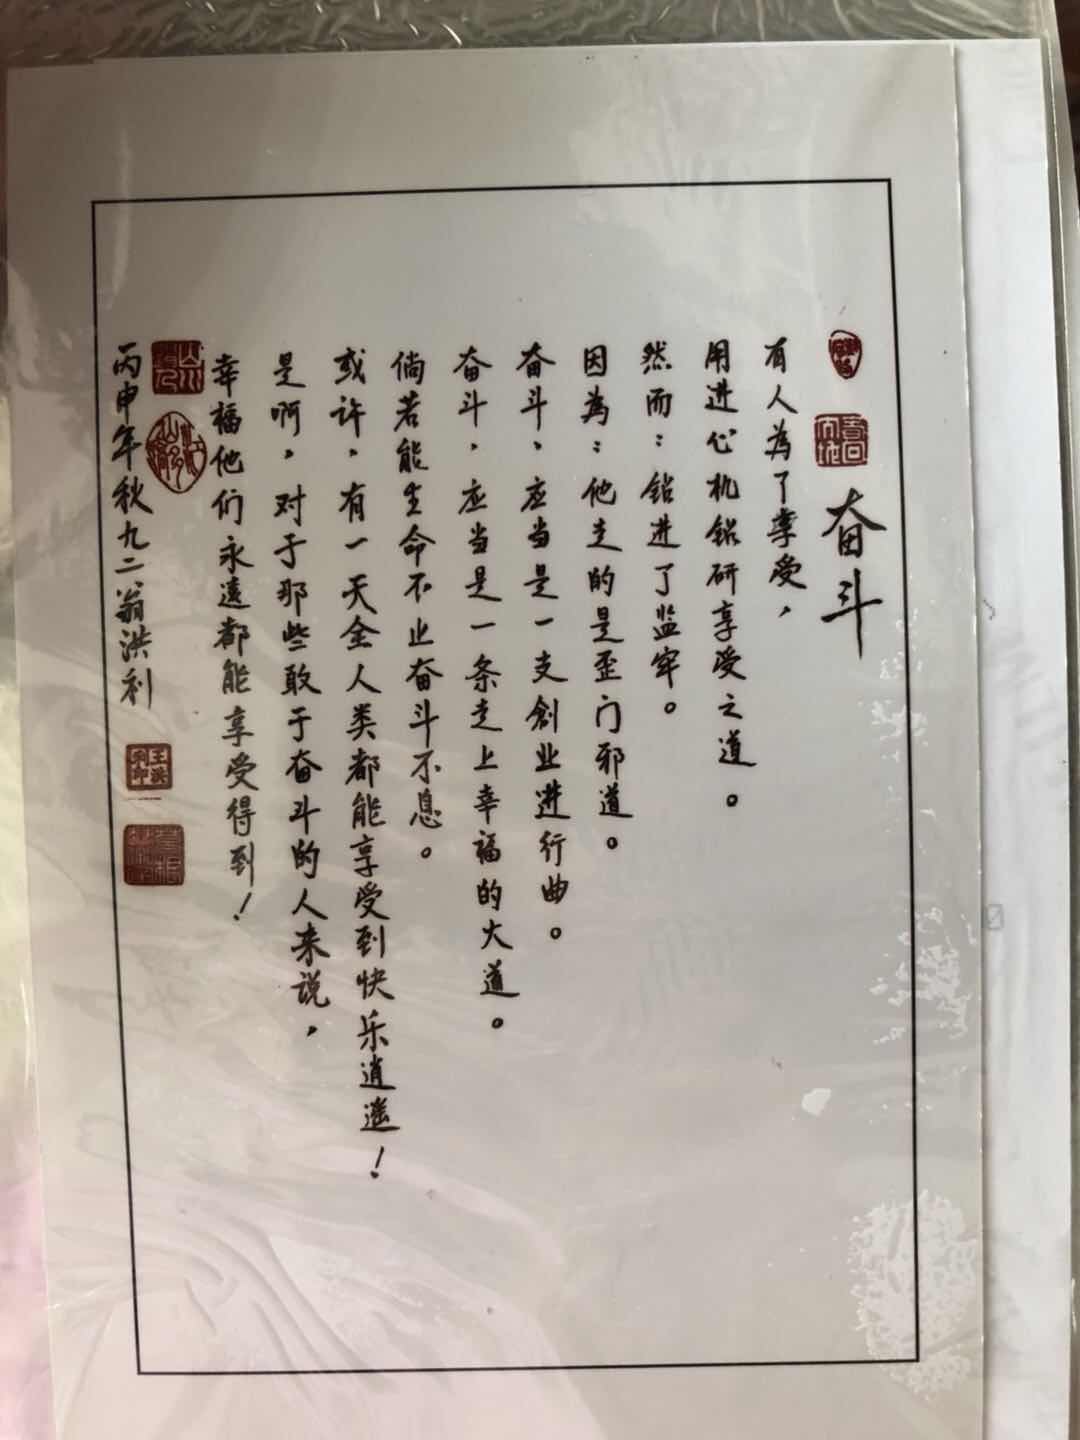 奋斗
有人为了享受，
用进心机钻研享受之道。
然而：钻进了监牢。
因為：他走的是歪门邪道。
奋斗，应当是一支創业进行曲。
奋斗，应当是一条走上幸福的大道。
倘若能生命不止奋斗不息。
或许，有一天全人类都能享受到快乐逍遥！
是啊，对于那些敢于奋斗的人来说，
幸福他们永远都能享受得到！
丙申年秋九二翁洪利